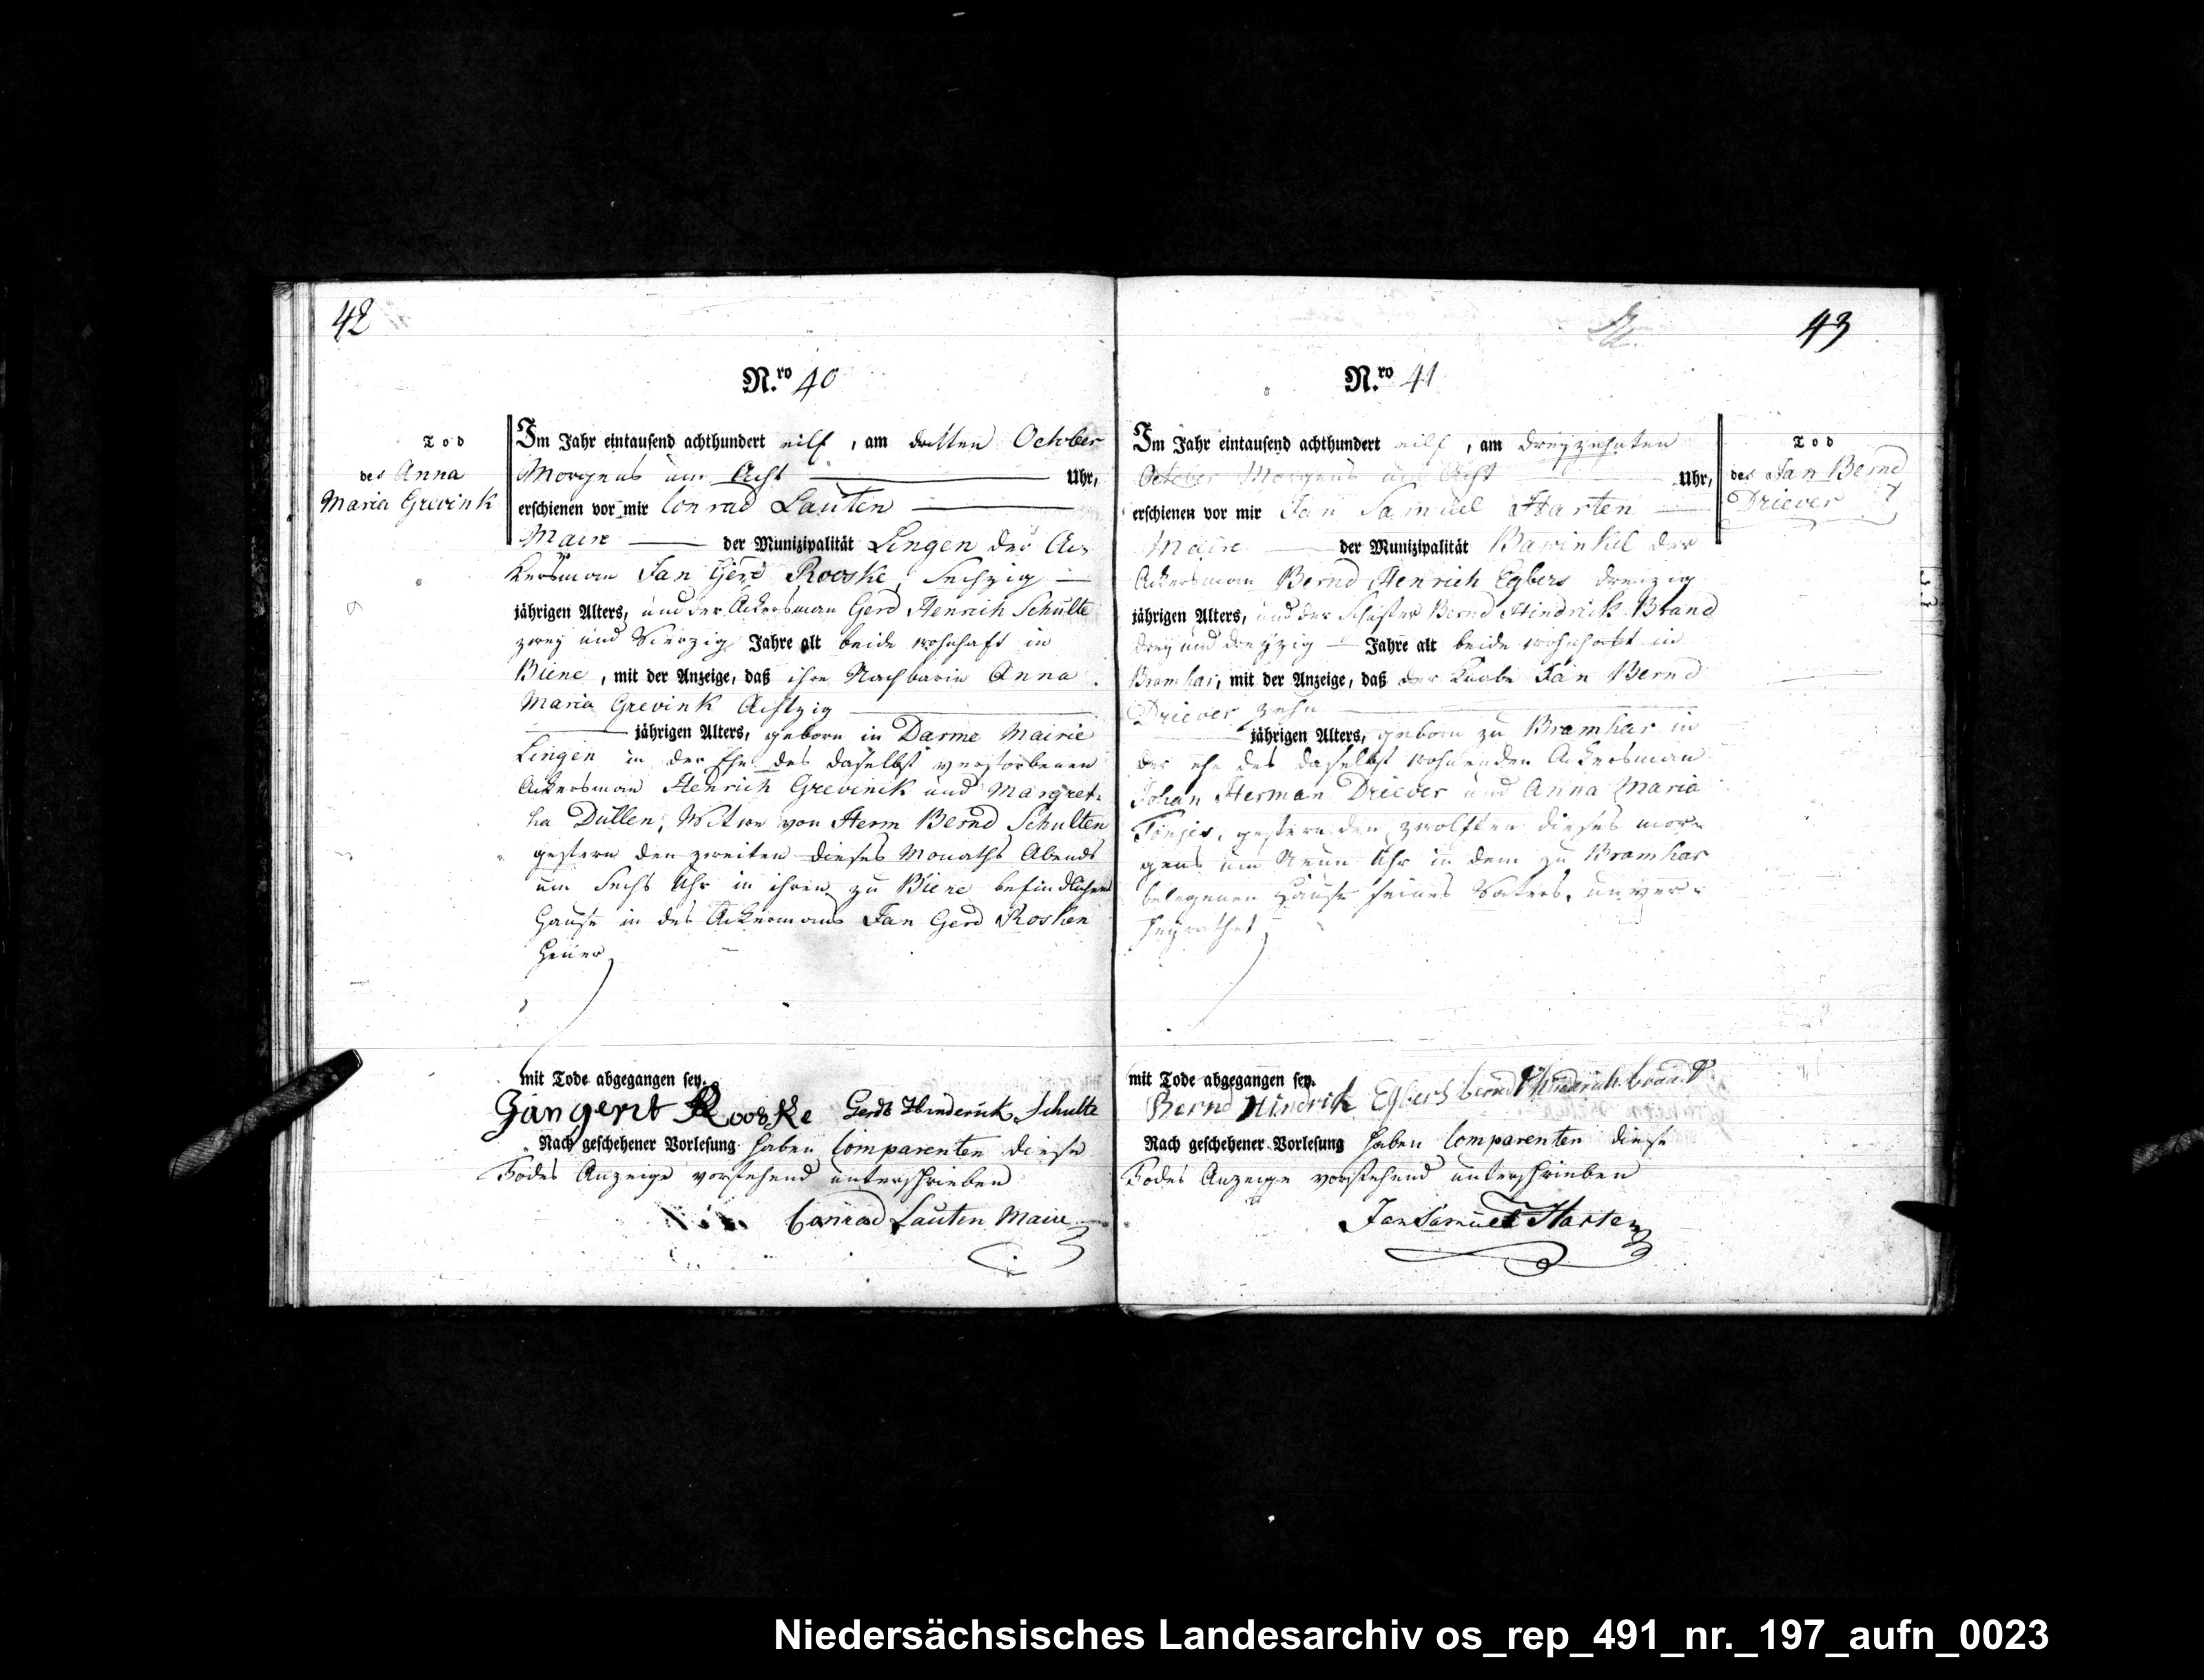 42
N.ro 40
Tod
des Anna
Maria Grevink
Im Jahr eintausend achthundert eilf, am dritten October
Morgens um Acht Uhr,
erschienen vor mir Conrad Lauten
Maire der Munizipalität Lingen der Ac-
kersman Jan Gerd Rooske, Sechzig
jährigen Alters, und der Ackersman Gerd Henrich Schulte
zwey und Vierzig Jahre alt beide wohnhaft in
Biene, mit der Anzeige, daß ihre Nachbarin Anna
Maria Grevink Achtzig
jährigen Alters, geboren in Darme Mairie
Lingen in der Ehe des daselbst verstorbenen
Ackersman Henrich Grevinck und Margret-
ha Dullen, Witwe von Herm Bernd Schulten
gestern den zweiten dieses Monaths Abends
um Sechs Uhr in ihren zu Biene befindlichen
Hause in des Ackermans Jan Gerd Rosken
Heuer
mit Tode abgegangen sey.
Jangerit Rooske Gerdt Hinderik Schulte
Nach geschehener Vorlesung haben Comparenten diese
Todes Anzeige vorstehend unterschrieben
Conrad Lauten Maire
43
N.ro 41
Tod
des Jan Bernd
Driever
Im Jahr eintausend achthundert eilf, am dreyzehnten
October Morgens um Acht Uhr,
erschienen vor mir Jan Samuel Harten
Maire der Munizipalität Bawinkel der
Ackersman Bernd Henrich Egbers dreizig
jährigen Alters, und der Bernd Hindrick Brand
drey und dreyzig Jahre alt beide wohnhaft in
Bramhar, mit der Anzeige, daß der Knabe Jan Bernd
Driever zehn
jährigen Alters, geboren zu Bramhar in
der ehe des daselbst wohnenden Ackersman
Johan Herman Driever und Anna Maria
gestern den zwolften dieses mor-
gens um Neun Uhr in dem zu Bramhar
belegenen Hause seines Vaters, unver-
heyrathet
mit Tode abgegangen sey.
Bernd Hindrik Egbers bernd Hindrich brand
Nach geschehener Vorlesung haben Comparenten diese
Todes Anzeige vorstehend unterschrieben
Jan Samuel Harten
Niedersächsisches Landesarchiv os_rep_491_nr._197_aufn_0023